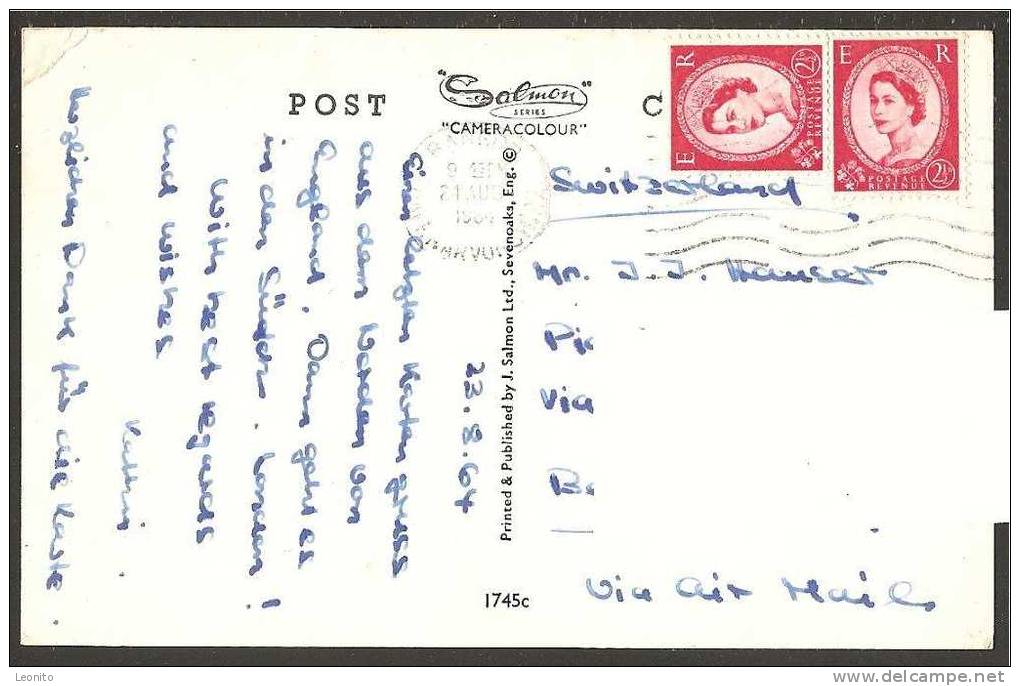 POST
"Salmon"
SERIES
"CAMERACOLOUR"
E R
2½D
POSTAGE
REVENUE
E R
POSTAGE
REVENUE
2½D
23.8.64
einen letzten Kartengruss
aus dem Norden von
England. Dann geht es
in den Süden. London!
With best regards
and wishes
Kathrin
herzlichen Dank für die Karte.
Printed & Published by J. Salmon Ltd., Sevenoaks, Eng. ©
1745c
Switzerland
Mr. J.J. Hauser
Via
Via Air Mail
Leonito
www.delcampe.net